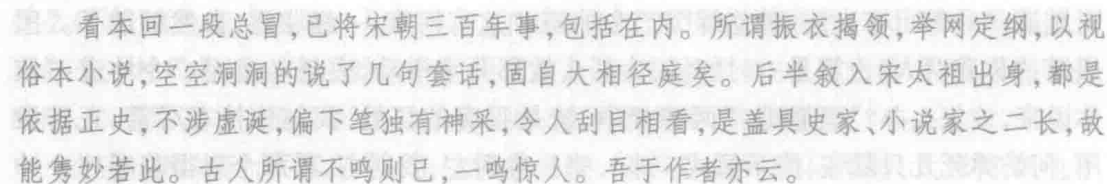 看本回一段总冒,已将宋朝三百年事,包括在内。所谓振衣揭领,举网定纲,以视
俗本小说,空空洞洞的说了几句套话,固自大相径庭矣。后半叙入宋太祖出身,都是
依据正史,不涉虚诞,偏下笔独有神采,令人刮目相看,是盖具史家、小说家之二长,故
能隽妙若此。古人所谓不鸣则已,一鸣惊人。吾于作者亦云。